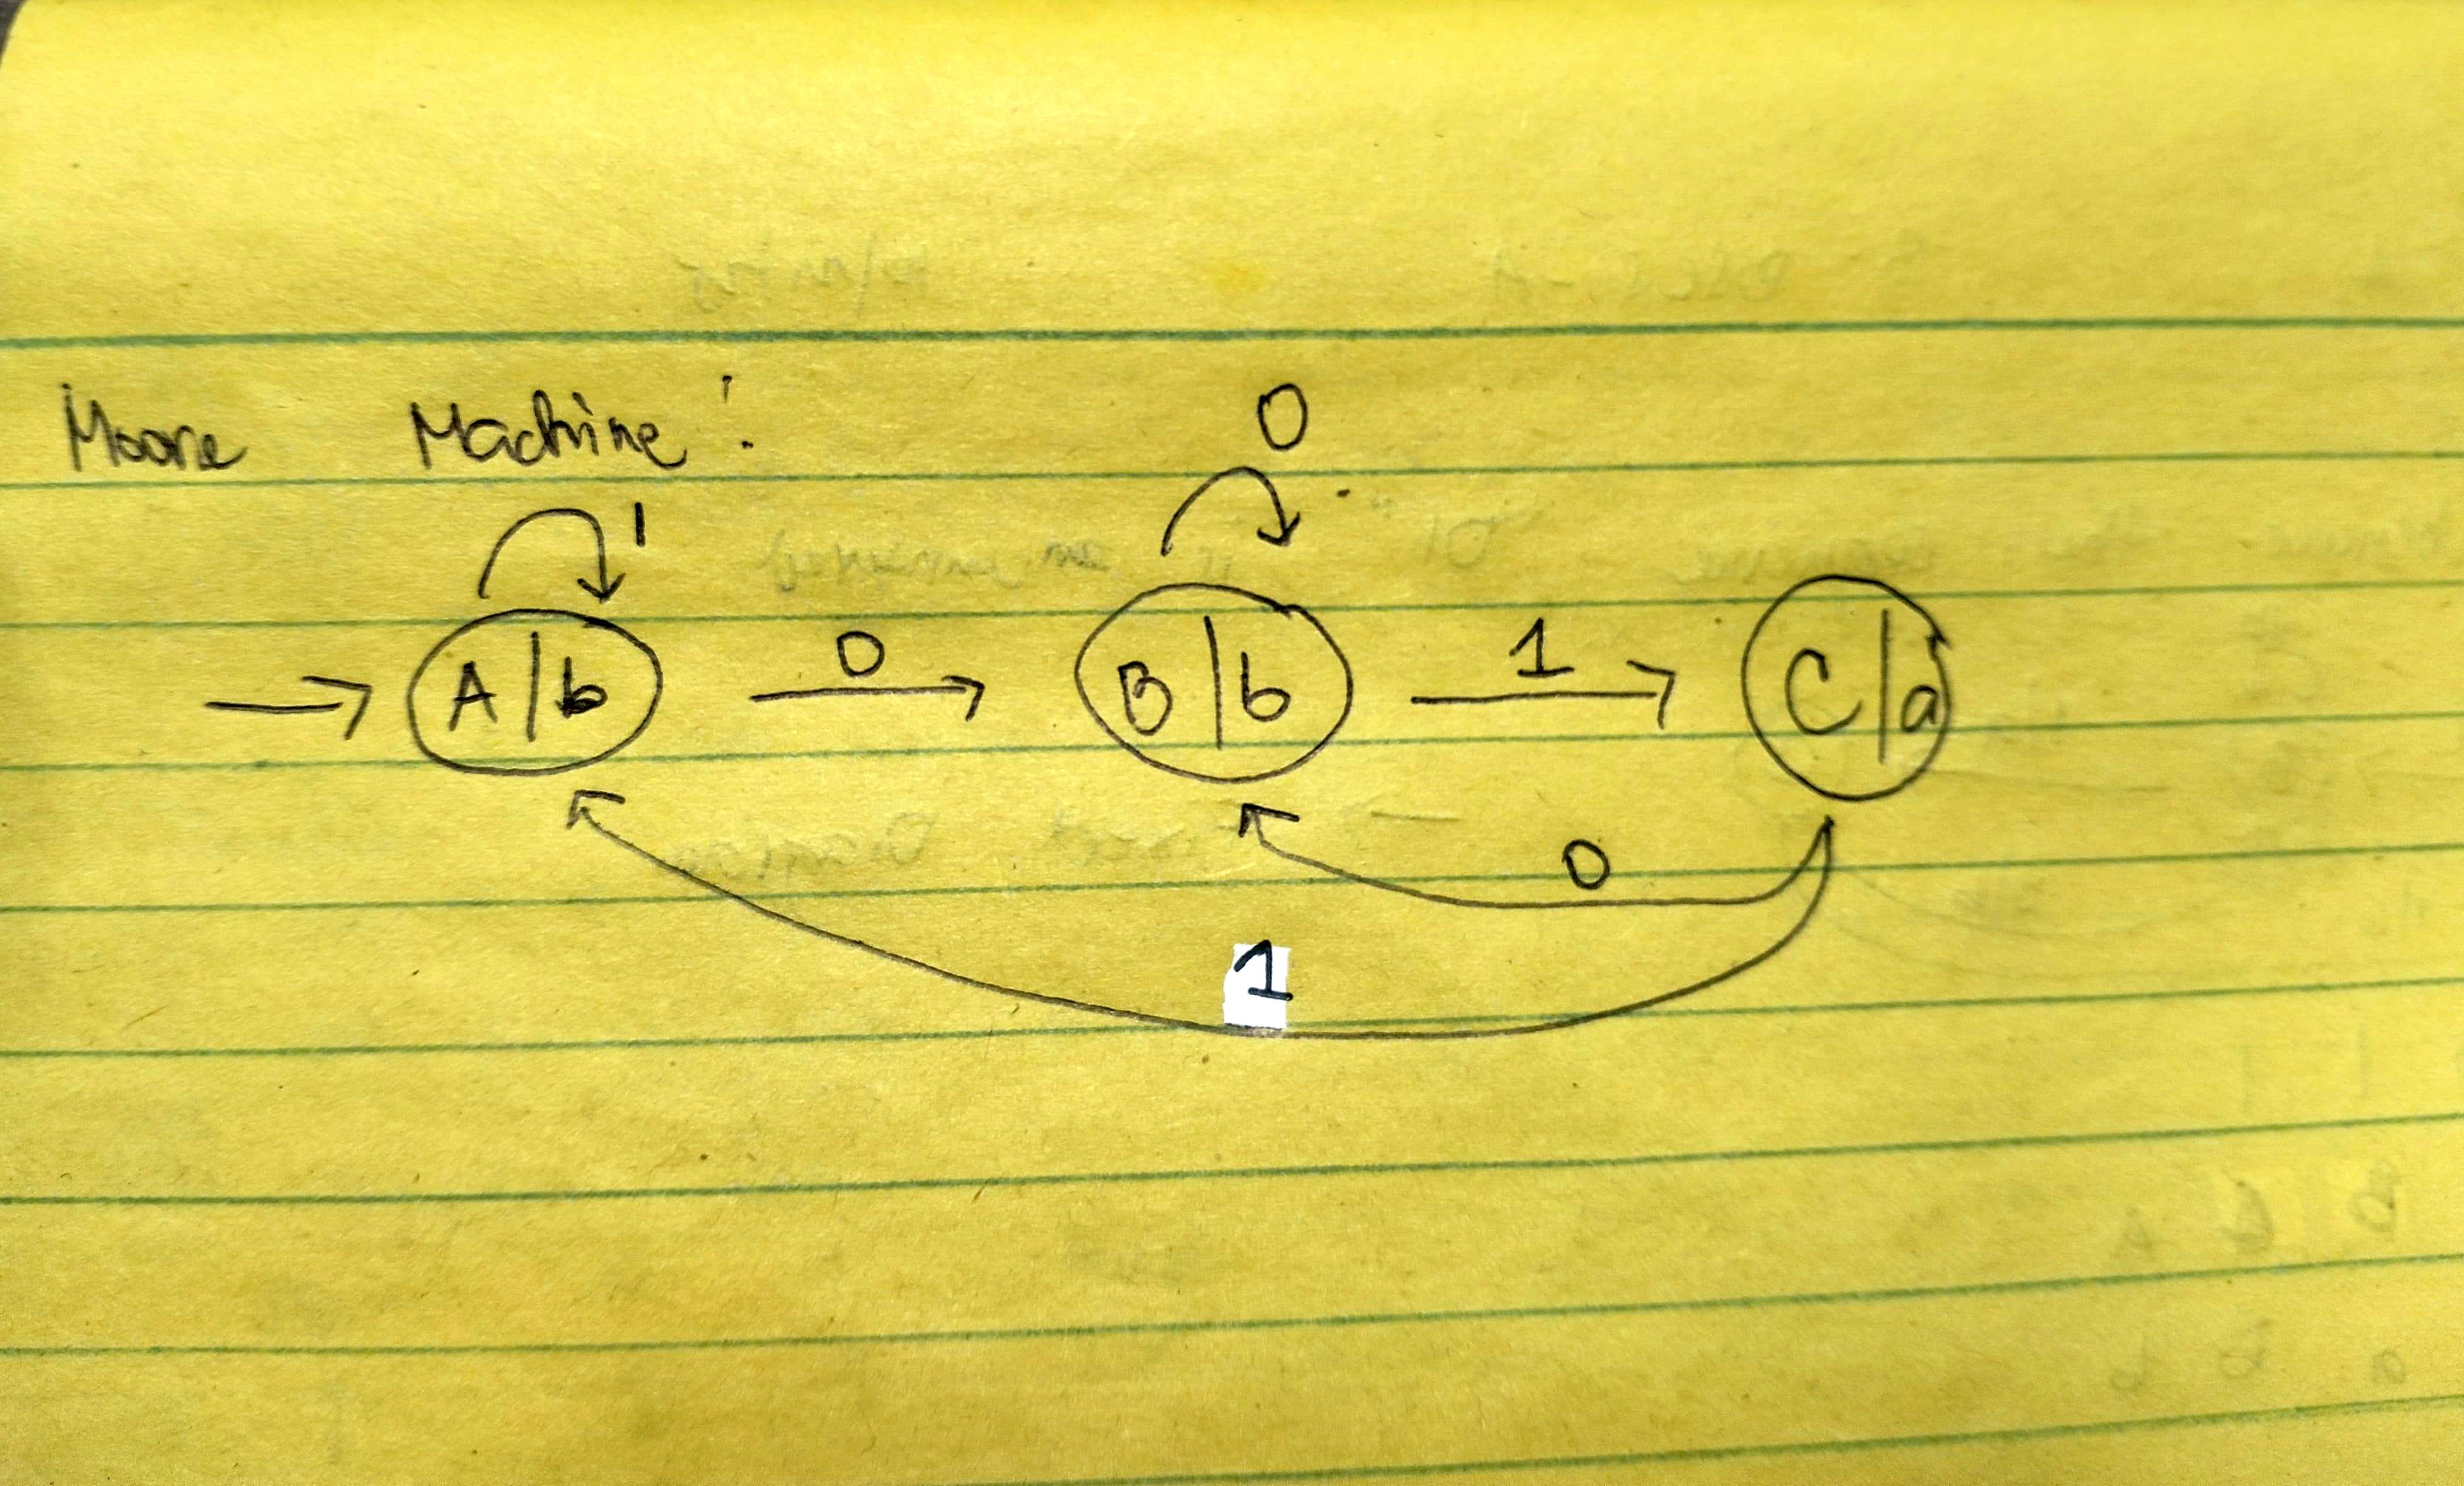 Moore Machine:
0
1
A/b 0 B/b 1 C/a
0
1